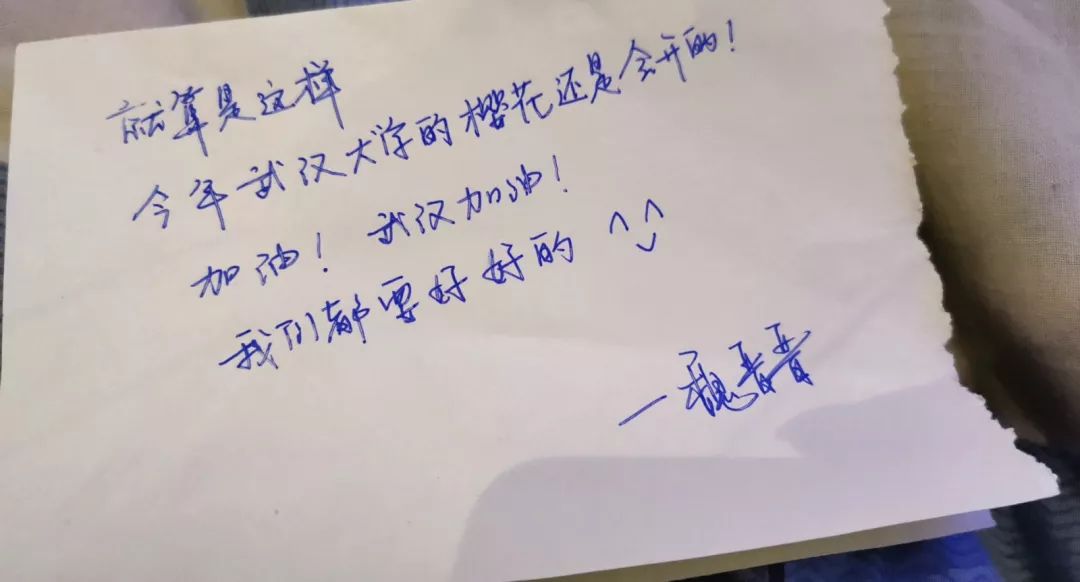 就算是这样
今年武汉大学的樱花还是会开的！
加油！武汉加油！
我们都要好好的 ^_^
—魏晋晋